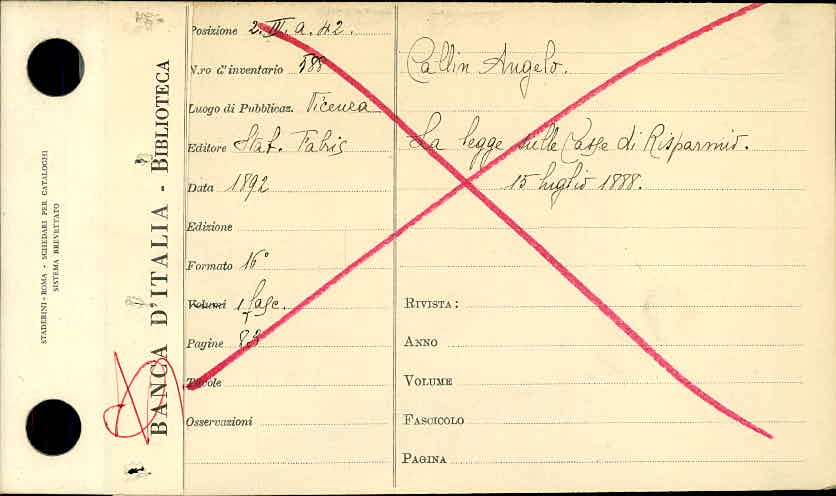 STADERINI - ROMA - SCHEDARI PER CATALOGHI
SISTEMA BREVETTATO
BANCA D'ITALIA - BIBLIOTECA
Posizione 2. IV. a. 42.
N.ro d'inventario 588
Luogo di Pubblicaz. Vicenza
Editore Stab. Fabris
Data 1892
Edizione
Formato 16°
Volumi 1 fasc.
Pagine 83
Tavole
Osservazioni
Callin Angelo.
La legge sulle Casse di Risparmio.
15 luglio 1888.
RIVISTA:
ANNO
VOLUME
FASCICOLO
PAGINA